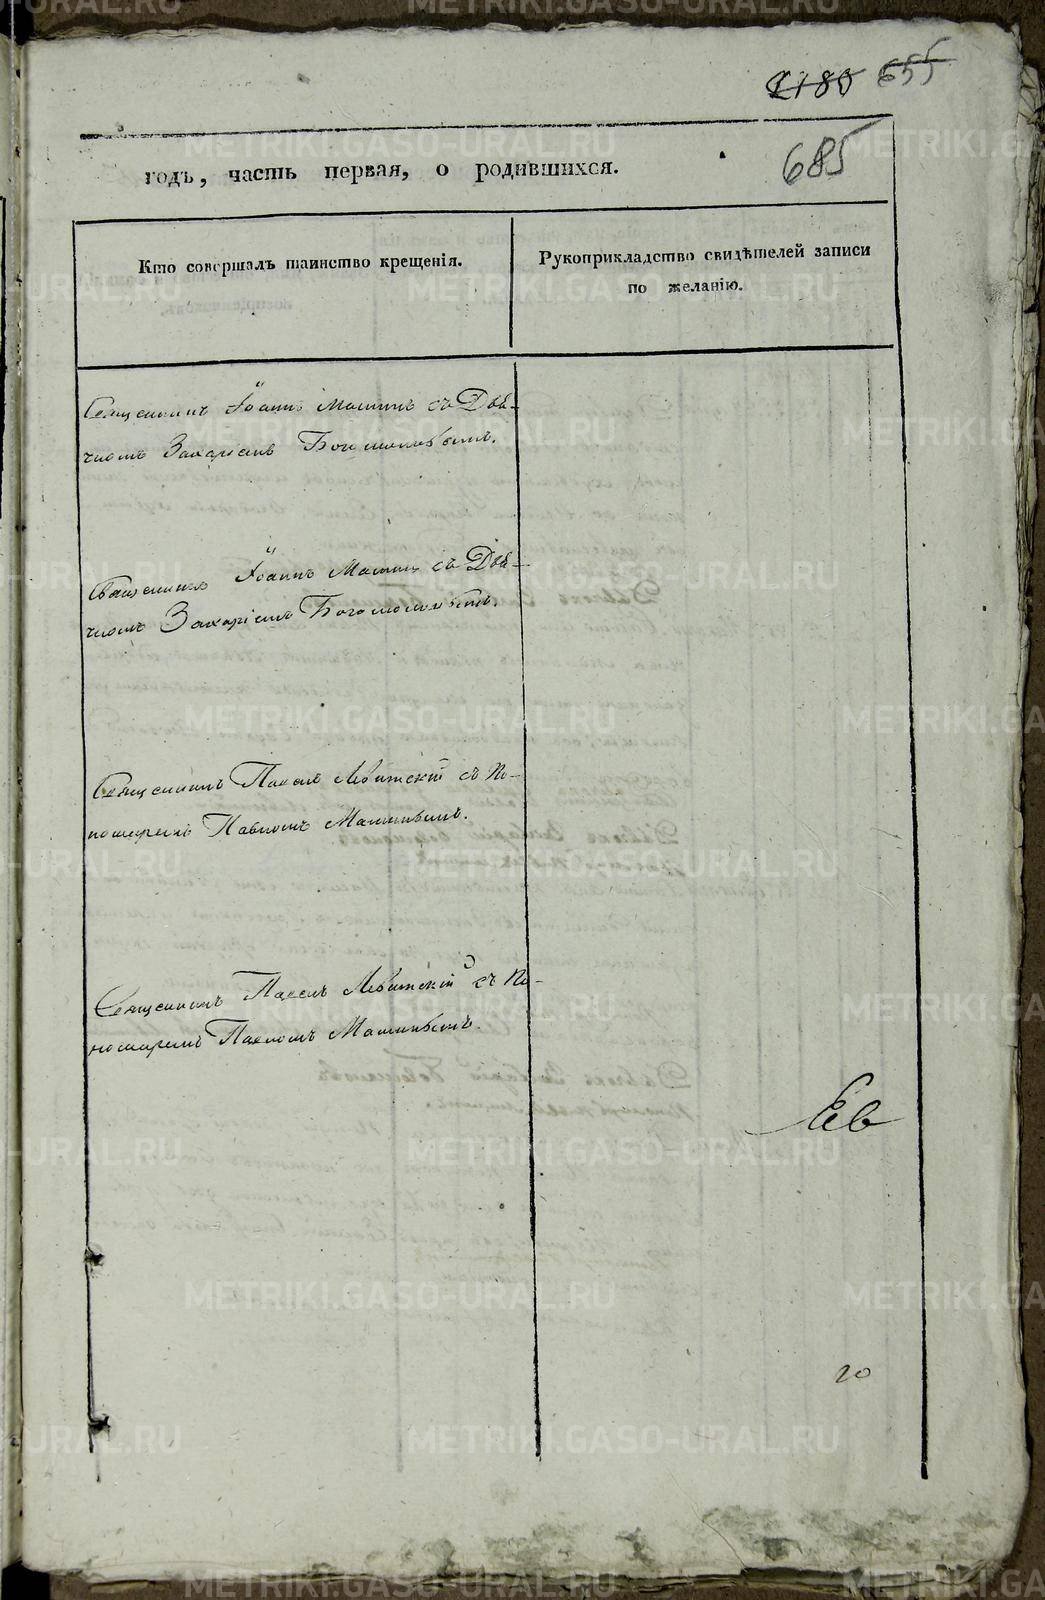 2180 655
685
годъ, часть первая, о родившихся.
Кто совершалъ таинство крещенія.
Рукоприкладство свидѣтелей записи
по желанію.
Священникъ Іоаннъ Маминъ съ Дья-
чкомъ Захаріемъ Богомоловымъ.
Священникъ Іоаннъ Маминъ съ Дья-
чкомъ Захаріемъ Богомоловымъ.
Священникъ Павелъ Левитскій съ По-
номаремъ Павломъ Маминымъ.
Священникъ Павелъ Левитскій съ По-
номаремъ Павломъ Маминымъ.
20
METRIKI.GASO-URAL.RU